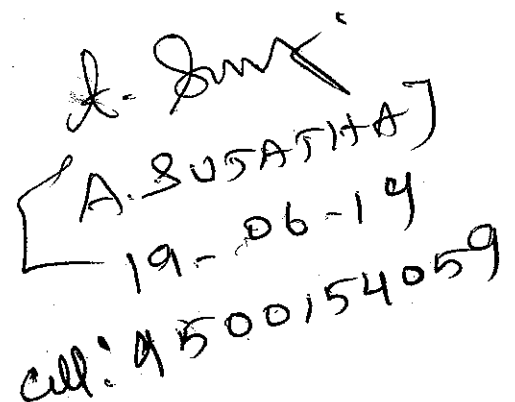 [A. SUJATHA]
19-06-19
Cell: 9500154059